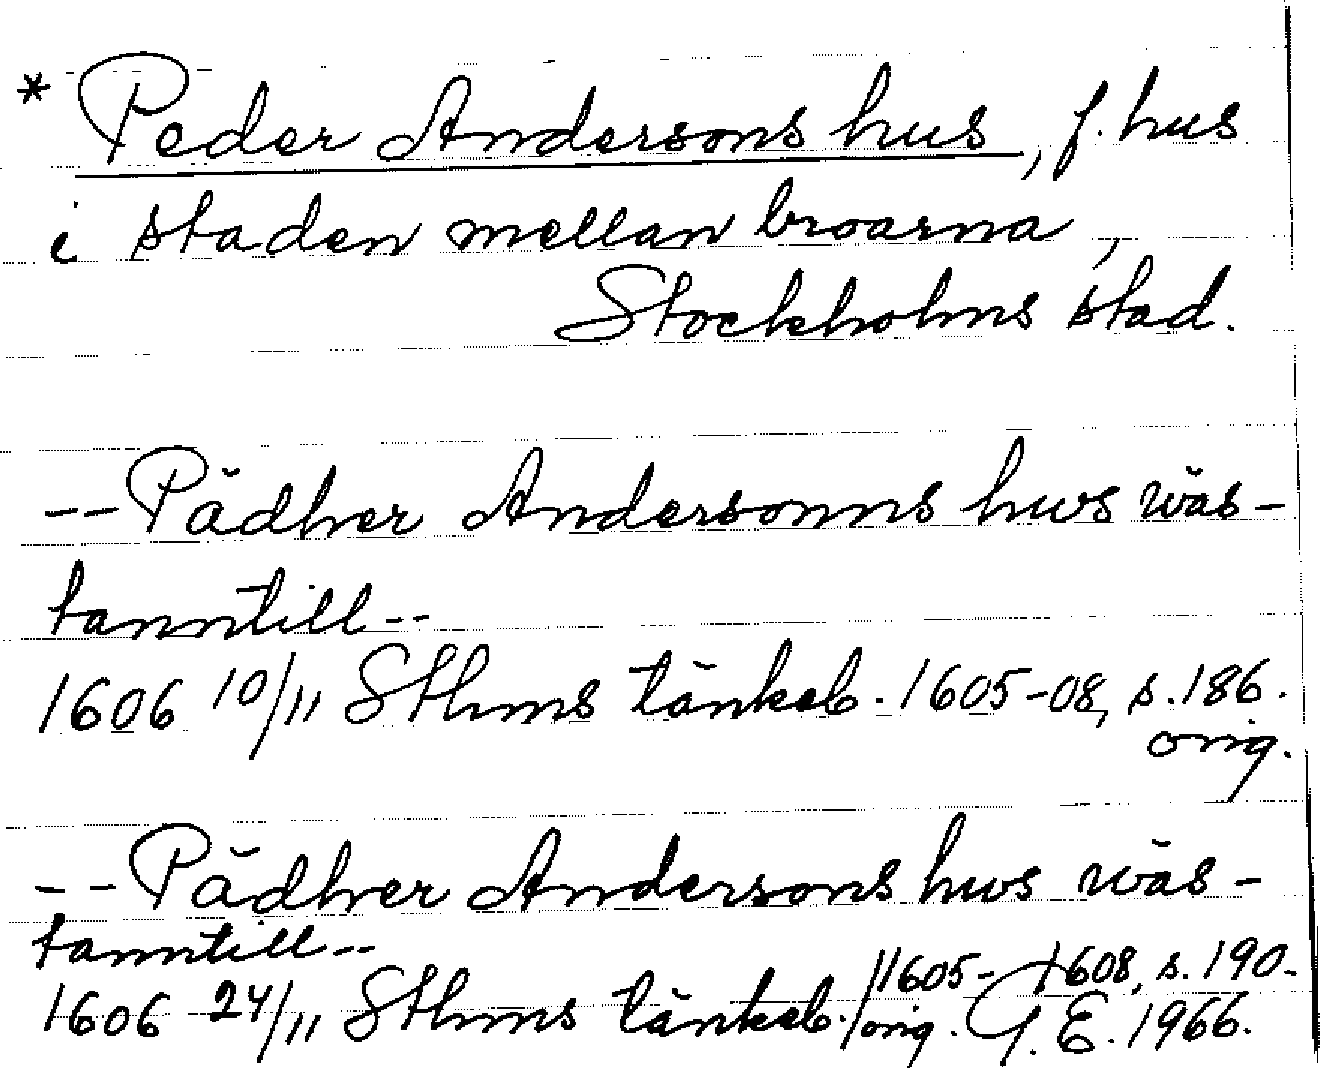 * Peder Andersons hus, f. hus
i staden mellan broarna,
Stockholms stad.
-- Pädher Andersonns hws wäs-
tanntill --
1606 10/11 Sthms tänkeb. 1605-08, s. 186.
orig.
-- Pädher Andersons hws wäs-
tanntill --
1606 24/11 Sthms tänkeb. 1605-1608, s. 190.
orig. G. E. 1966.